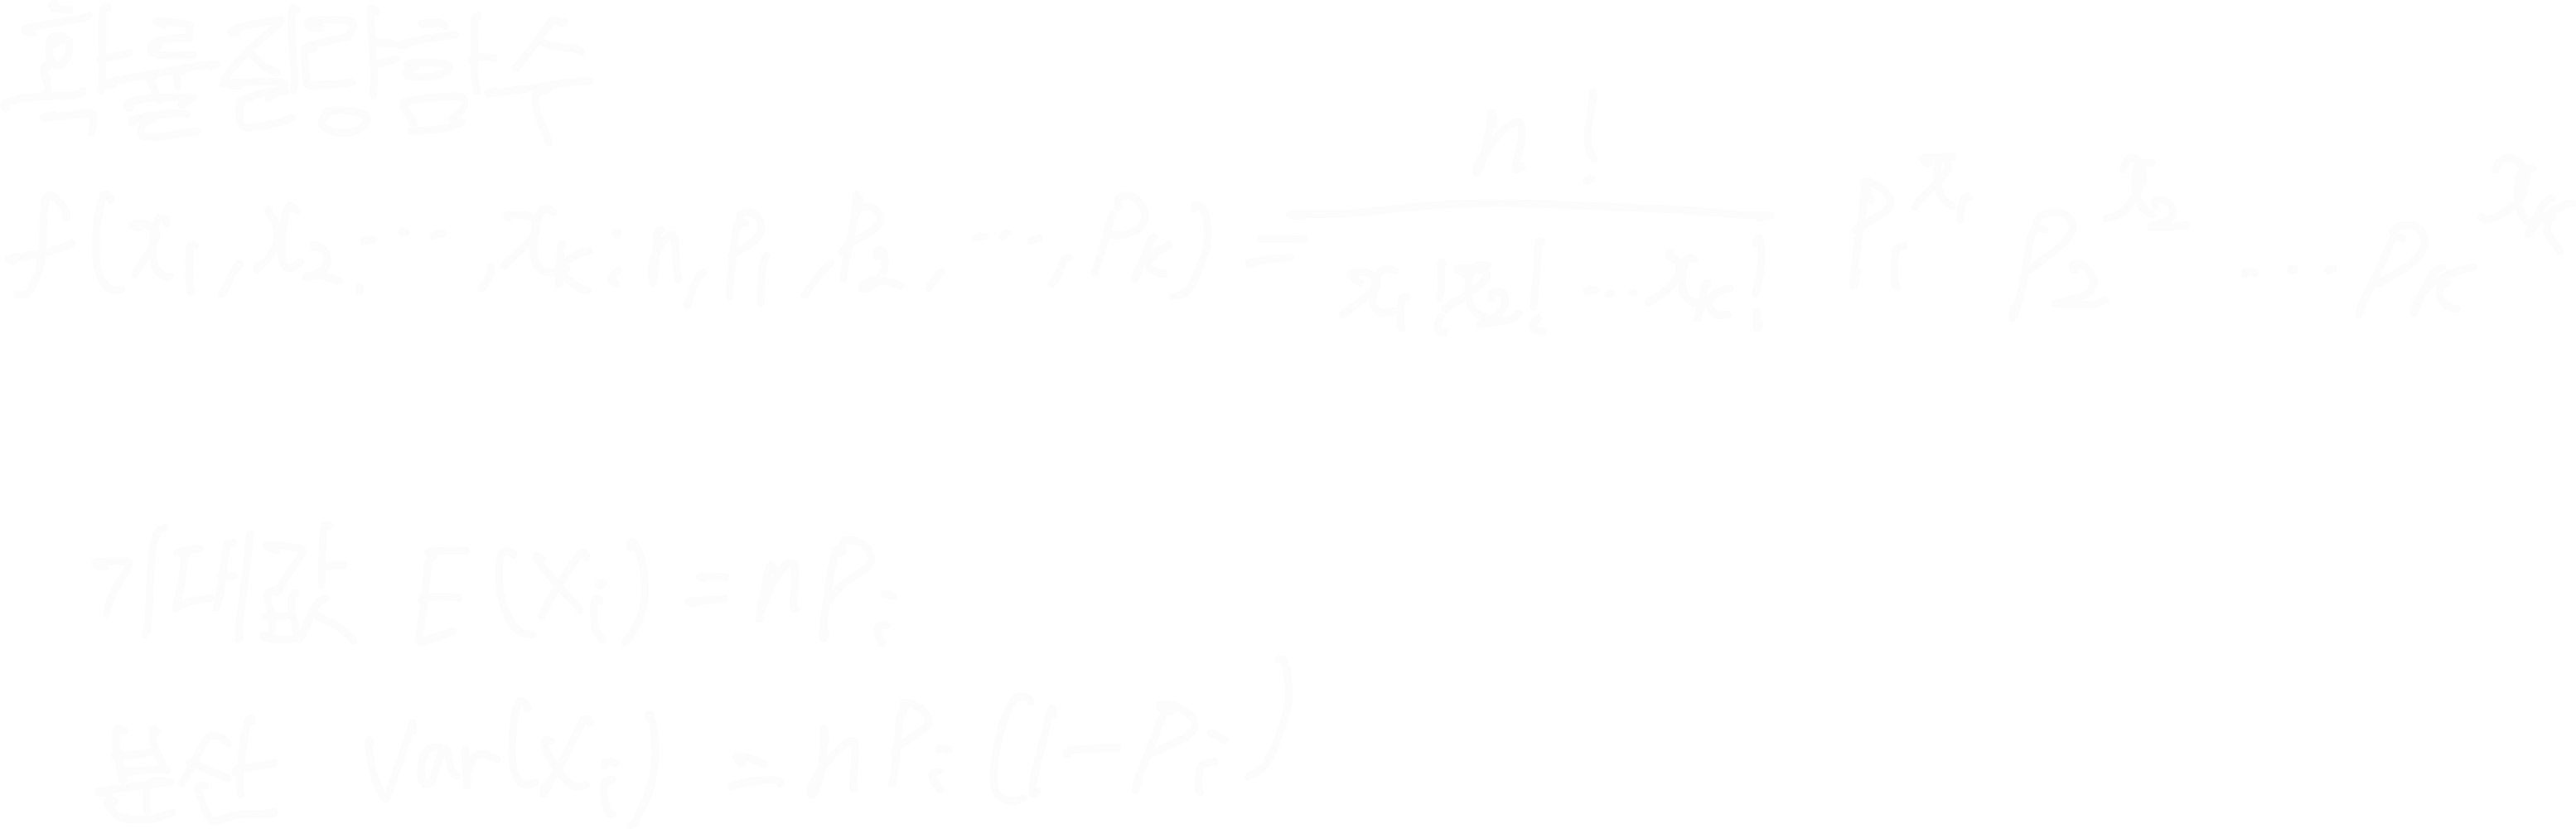 확률질량함수
f(x₁,x₂,…,xₖ; n,p₁,p₂,…,pₖ) = n! / (x₁!x₂!…xₖ!) p₁^x₁ p₂^x₂ … pₖ^xₖ
기대값 E(Xᵢ) = nPᵢ
분산 Var(Xᵢ) = nPᵢ(1-Pᵢ)